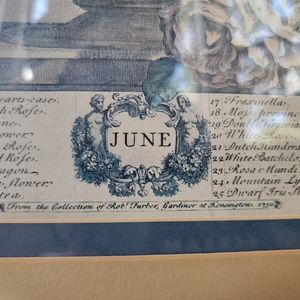 earts-ease.
h Rose.
ne.
ower.
Rose.
l Rose.
agon.
flower.
tea.
JUNE
17 Fraxinella.
18 Moss provinc
20 White Rose
21 Dutch Hundred
22 White Batchelo
23 Rosa Mundi
24 Mountain Li
25 Dwarf Iris
From the Collection of Rob.t Furber, Gardiner at Kensington. 1730